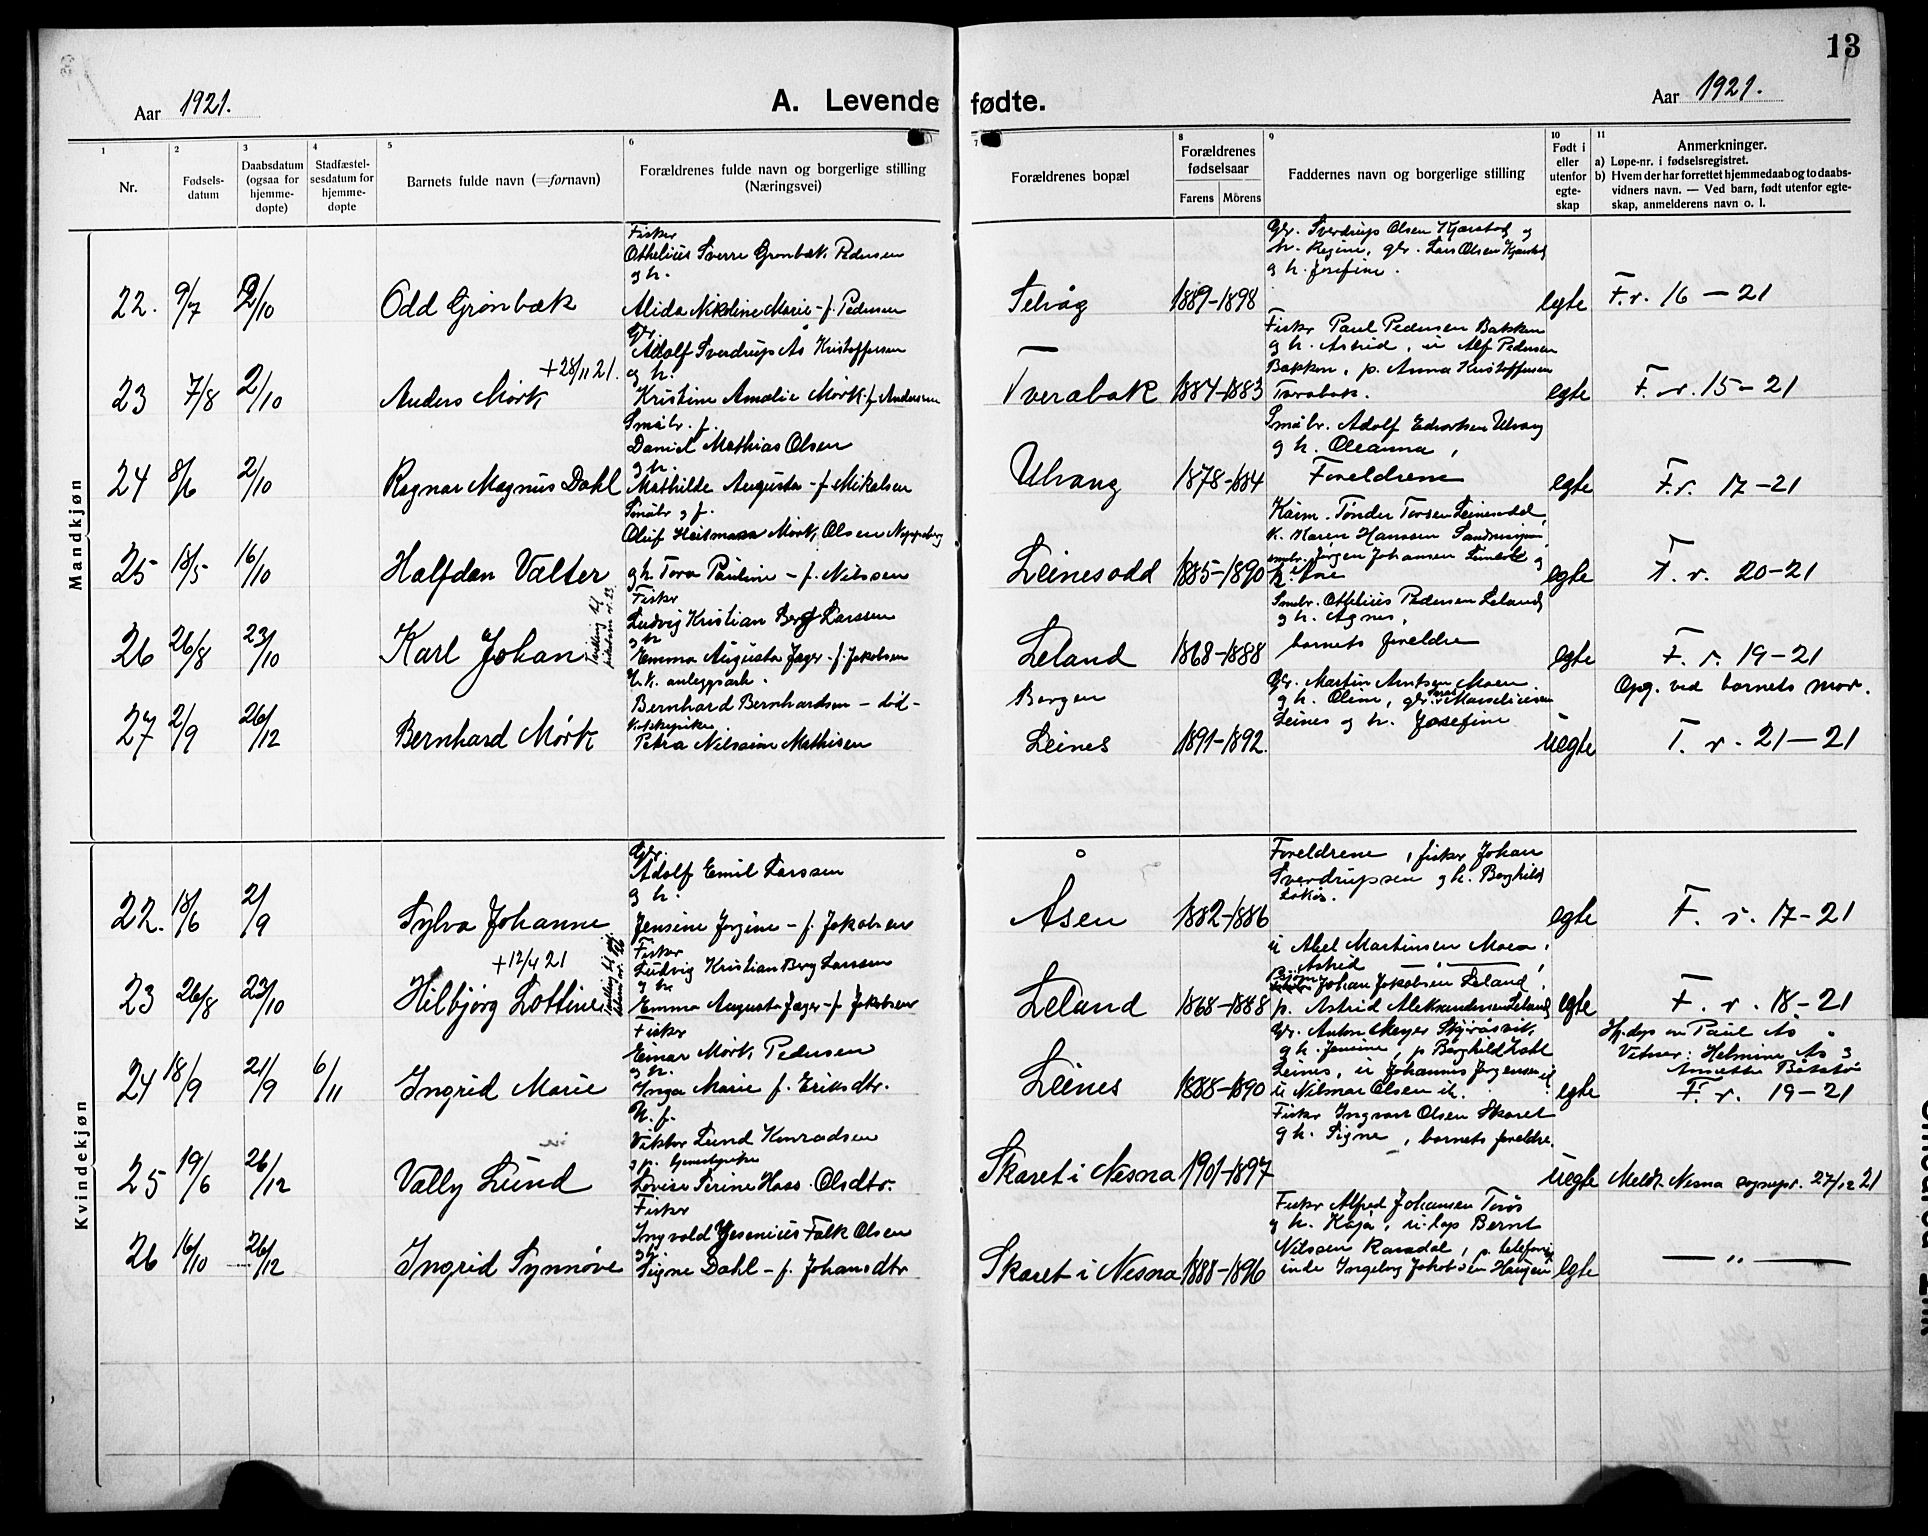 13
Aar 1921.
A. Levende fødte.
Aar 1921.
1 2 3 4 5 6 7 8 9 10 11
Nr.
Fødsels-
datum
Daabsdatum
(ogsaa for
hjemme-
døpte)
Stadfæstel-
sesdatum for
hjemme-
døpte
Barnets fulde navn (=fornavn)
Forældrenes fulde navn og borgerlige stilling
(Næringsvei)
Forældrenes bopæl
Forældrenes
fødselsaar
Farens Mörens
Faddernes navn og borgerlige stilling
Født i
eller
utenfor
egte-
skap
Anmerkninger.
a) Løpe-nr. i fødselsregistret.
b) Hvem der har forrettet hjemmedaab og to daabs-
vidners navn. — Ved barn, født utenfor egte-
skap, anmelderens navn o. l.
Mandkjøn
22. 9/7 2/10 Odd Grønbæk
Fisker
Othelius Sverre Grønbæk Pedersen
og h.
Alida Nikoline Marie - f. Pedersen
Selvåg 1889-1898
Gbr. Sverdrup Olsen Kjærstad og
h. Regine, gbr. Lars Olsen Kjærstad
og h. Josefine.
egte F.r. 16-21
23 7/8 2/10 Anders Mørk +28/11 21.
Gbr.
Adolf Sverdrup Ås Kristoffersen
og h.
Kristine Amalie Mørk f. Andersen
Tverabak 1884-1883
Fisker Paul Pedersen Bakken
og h. Astrid, u Alf Pedersen
Bakken, p. Anna Kristoffersen
Tverabak.
egte F.r. 15-21
24 8/6 2/10 Ragnar Magnus Dahl
Småbr. f.
Daniel Mathias Olsen
og h.
Mathilde Augusta - f. Mikalsen
Ulvang 1878-1884
Småbr. Adolf Edvartsen Ulvang
og h. Oleanna,
Foreldrene
egte F.r. 17-21
25 18/5 16/10 Halfdan Valter
Småbr og f.
Oluf Heitmann Mørk Olsen
og h. Tora Pauline - f. Nilssen
Leinesodd 1885-1890
Tønder Torsen Leinesodd,
k. Karen Hanssen
smbr. Jørgen Johansen og
egte F.r. 20-21
26 26/8 23/10 Karl Johan
Tvilling til
pikebarn nr. 23.
Fisker
Ludvig Kristian Berg Larssen
og h
Emma Augusta Jager - f. Jakobsen
Leland 1868-1888
Smbr. Othelius Pedersen Leland
og h. Agnes,
barnets foreldre
egte F.r. 19-21
27 2/9 26/12 Bernhard Mørk
U. K. anleggsarb.
Bernhard Bernhardsen - død -
Petra Nilsine Mathisen
Borgen
Leines 1891-1892.
Gbr. Martin Arntsen Moen
og h. Oline, gbr. Marseliusen
Leines og h. Josefine
uegte
Opg. ved barnets mor.
F.r. 21-21
Kvindekjøn
22. 18/6 2/9 Sylva Johanne
Gbr.
Adolf Emil Larssen
og h.
Jensine Jørgine - f. Jakobsen
Åsen 1882-1886
Foreldrene, fisker Johan
Sverdrupsen og h. Borghild
egte F.r. 17-21
23 26/8 23/10 Hilbjørg Lottine +12/4 21
Tvilling til
Fisker
Ludvig Kristian Berg Larssen
og h
Emma Augusta Jager - f. Jakobsen
Leland 1868-1888
u Abel Martinsen Moen,
Astrid — " —,
Johan Jakobsen Leland,
p. Astrid Aleksandersen Leland
egte F.r. 18-21
24 18/9 21/9 6/11 Ingrid Marie
Fisker
Einar Mørk Pedersen
og h.
Inga Marie f. Eriksdtr.
Leines 1888-1890
Gbr. Anton Meyer
og h. Jensine, p Borghild
Leines, u Johannes Jørgensen
u Nilmar Olsen
egte
Hj.døp av Paul Ås
Vitner: Helmine Ås og
Annette
F.r. 19-21
25 19/6 26/12 Vally Lund
U. f.
Viktor Lund Konradsen
og p.
Lovise Serine Hass Olsdtr.
Skaret i Nesna 1901-1897
Fisker Ingvart Olsen Skaret
og h. Signe, barnets foreldre.
uegte Meldt Nesna sognepr. 27/12 21
26 16/10 26/12 Ingrid Synnøve
Fisker
Ingvald Yesenius Falk Olsen
og h
Signe Dahl - f. Johansdtr
Skaret i Nesna 1888-1896
Fisker Alfred Johansen
og h. Kaja, Bernt
Nilssen
Ingeborg Jakobsen Haugen
egte — " —